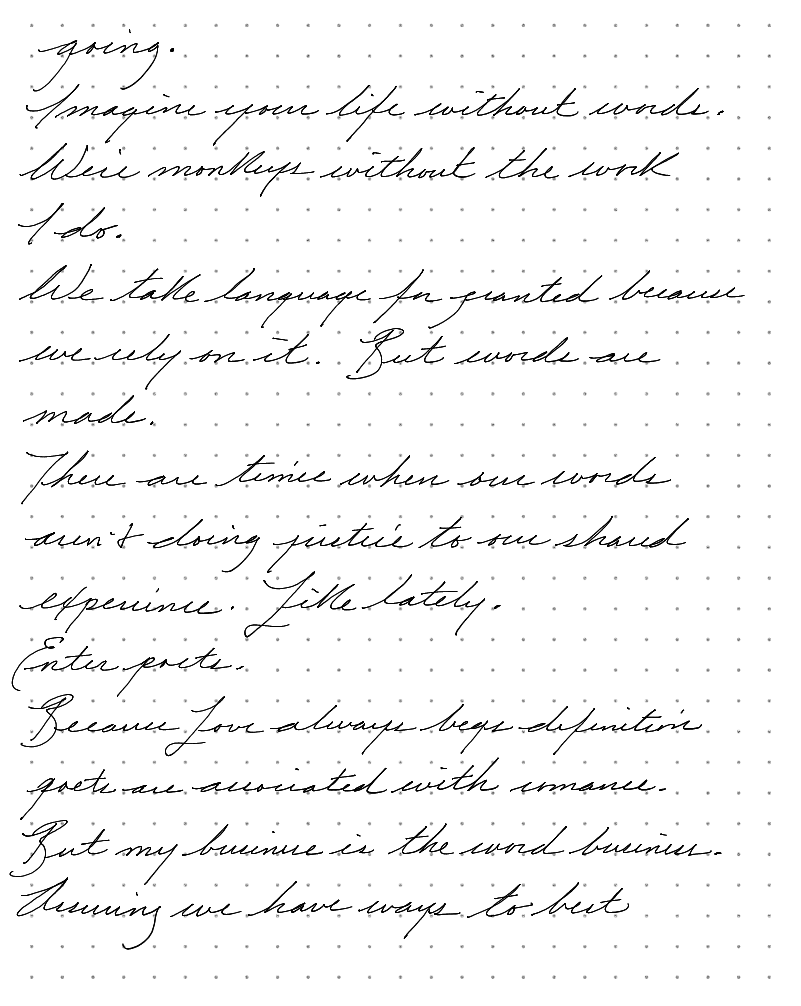 going.
Imagine your life without words.
We're monkeys without the work
I do.
We take language for granted because
we rely on it. But words are
made.
There are times when our words
aren't doing justice to our shared
experience. Like lately.
Enter poets.
Because Love always begs definition
poets are associated with romance.
But my business is the word business.
Assuring we have ways to best